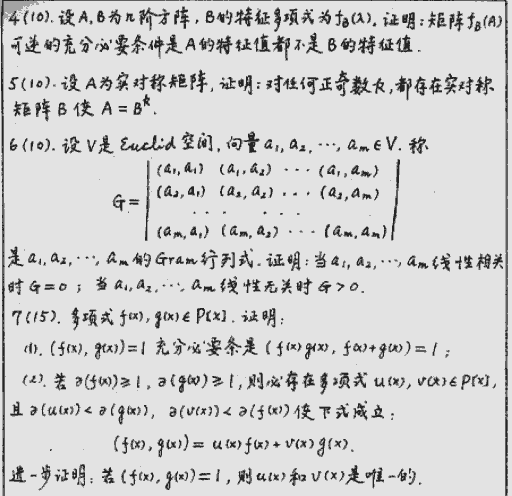 4(10). 设A,B为n阶方阵, B的特征多项式为f_B(λ). 证明: 矩阵f_B(A)
可逆的充分必要条件是A的特征值都不是B的特征值.
5(10). 设A为实对称矩阵, 证明: 对任何正奇数k, 都存在实对称
矩阵B使 A = B^k.
6(10). 设V是Euclid空间, 向量a₁, a₂, ⋯, aₘ ∈ V. 称
(a₁,a₁) (a₁,a₂) ⋯ (a₁,aₘ)
(a₂,a₁) (a₂,a₂) ⋯ (a₂,aₘ)
G = ⋯ ⋯ ⋯
(aₘ,a₁) (aₘ,a₂) ⋯ (aₘ,aₘ)
是a₁,a₂,⋯,aₘ的Gram行列式. 证明: 当a₁,a₂,⋯,aₘ线性相关
时G=0; 当a₁,a₂,⋯,aₘ线性无关时G>0.
7(15). 多项式f(x), g(x)∈P[x]. 证明:
(1). (f(x), g(x))=1 充分必要条是(f(x)g(x), f(x)+g(x))=1;
(2). 若∂(f(x))≥1, ∂(g(x))≥1, 则必存在多项式u(x), v(x)∈P[x],
且∂(u(x))<∂(g(x)), ∂(v(x))<∂(f(x))使下式成立:
(f(x), g(x)) = u(x)f(x) + v(x)g(x).
进一步证明: 若(f(x), g(x))=1, 则u(x)和v(x)是唯一的.